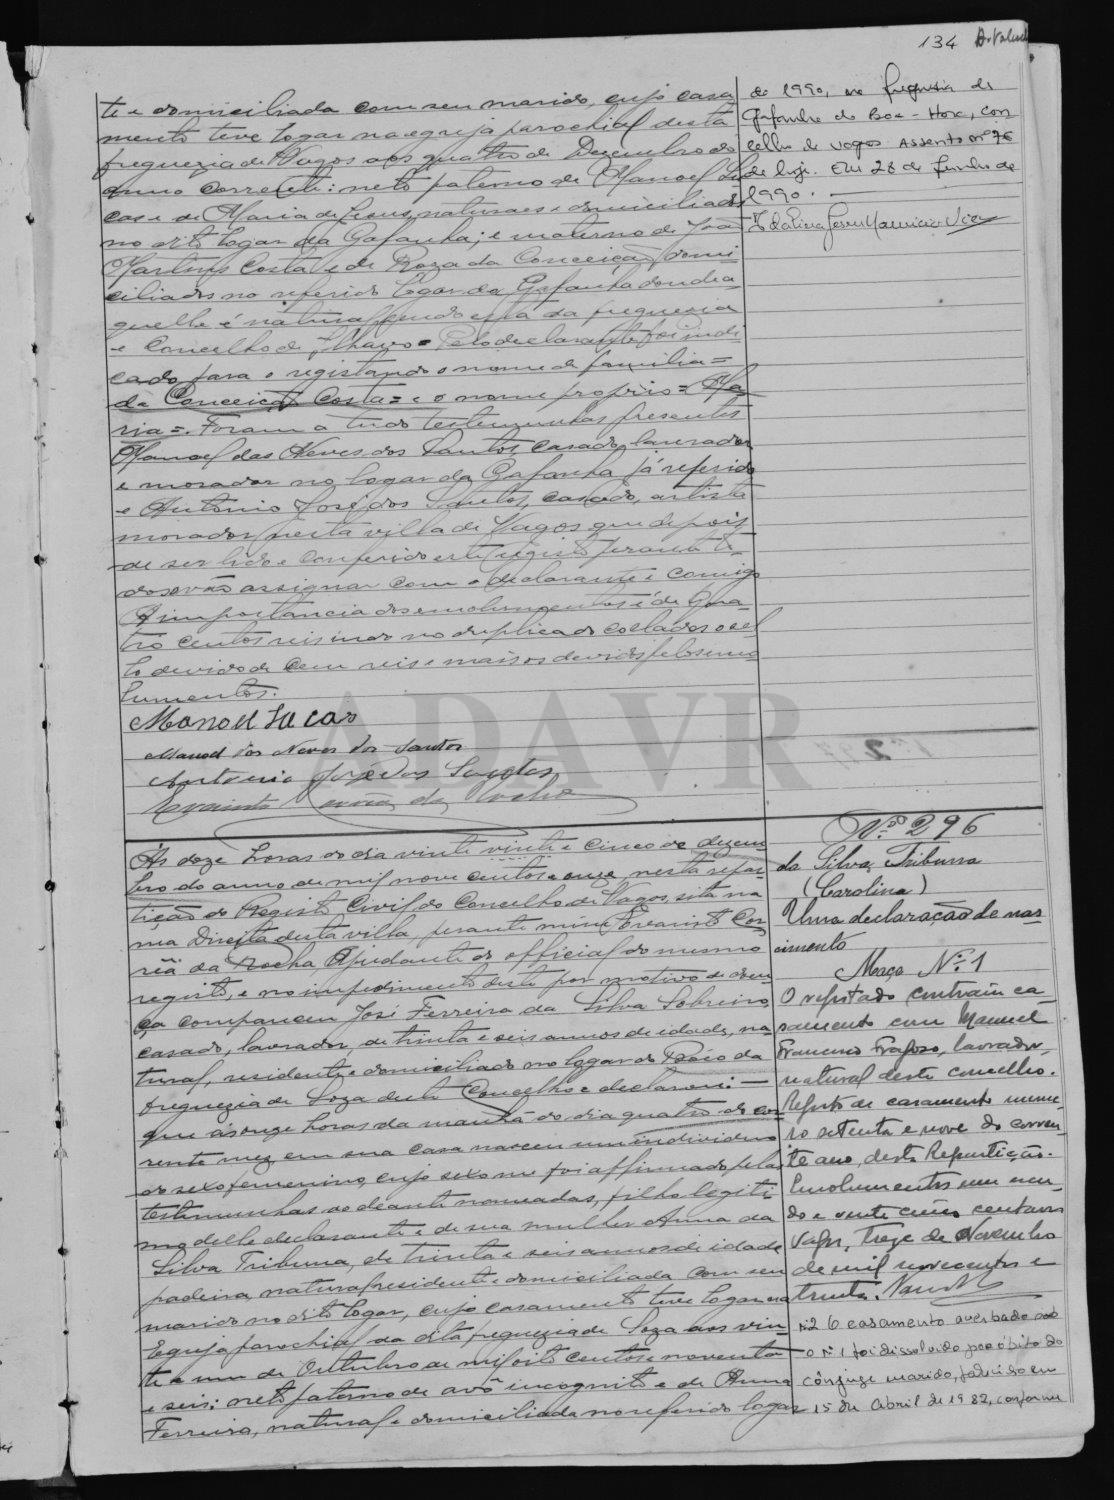 134
te e domiciliada com seu marido, cujo casa
mento teve logar na egreja parochial desta
freguezia de Vagos aos quatro de Dezembro do
anno corrente: neto paterno de Manoel Lu
cas e de Maria de Jesus, naturaes e domiciliados
no dito logar da Gafanha; e materno de João
Martins Costa e de Roza da Conceição domi
ciliados no referido logar da Gafanha donde a
quelle é natural, sendo esta da freguezia
e Concelho de Ilhavo = Pelo declarante foi indi
cado para o registando o nome de familia =
da Conceição Costa = e o nome proprio = Ma
ria =. Foram a tudo testemunhas presentes
Manoel das Neves dos Santos, casado, lavrador
e morador no logar da Gafanha já referido
e Antonio José dos Santos, casado, artista
morador nesta villa de Vagos que depois
de ser lido e conferido este registo perante to-
dos vão assignar com o declarante e comigo
A importancia dos emolumentos é de qua-
tro centos reis indo no duplicado collado o sel
lo devido de cem reis e mais os devidos pelos emo
lumentos.
Manoel Lucas
Manoel das Neves dos Santos
Antonio José dos Santos
Evaristo Corrêa da Rocha
de 1990, na freguesia de
Gafanha da Boa-Hora, con
celho de Vagos Assento nº 76
de hoje. Em 28 de Junho de
1990.
ADAVR
Nº 296
da Silva Tribuna
(Carolina)
Uma declaração de nas
cimento
Maço Nº 1
O registado contraiu ca-
samento com Manuel
Francisco Fragoso, lavrador,
natural deste concelho.
Registo de casamento nume-
ro setenta e nove do corren-
te ano, desta Repartição.
Emolumentos um escu-
do e vinte cinco centavos
Vagos, Treze de Novembro
de mil novecentos e
trinta.
Nº2 O casamento averbado sob
o nº 1 foi dissolvido por óbito do
cônjuge marido, falecido em
15 de Abril de 1982, conforme
Ás doze horas do dia vinte vinte e cinco de dezem-
bro do anno de mil nove centos e onze, nesta repar-
tição do Registo Civil do Concelho de Vagos, sita na
rua Direita desta villa, perante mim Evaristo Cor-
rêa da Rocha, Ajudante do official do mesmo
registo, e no impedimento deste por motivo de doen
ça compareceu José Ferreira da Silva Sobreiro,
casado, lavrador, de trinta e seis annos de idade, na
tural, residente e domiciliado no logar do Boco da
freguezia de Soza deste Concelho e declarou: —
que ás onze horas da manhã do dia quatro do cor-
rente mez em sua casa nasceu um individuo
do sexo femenino, cujo sexo me foi affirmado pelas
testemunhas ao deante nomeadas, filho legiti-
mo delle declarante e de sua mulher Anna da
Silva Tribuna, de trinta e seis annos de idade
padeira, natural, residente e domiciliada com seu
marido no dito logar, cujo casamento teve logar na
Egreja parochial da dita freguezia de Soza aos vin-
te e um de Outubro de mil oito centos e noventa
e seis: neto paterno de avô incognito e de Anna
Ferreira, natural e domiciliada no referido logar